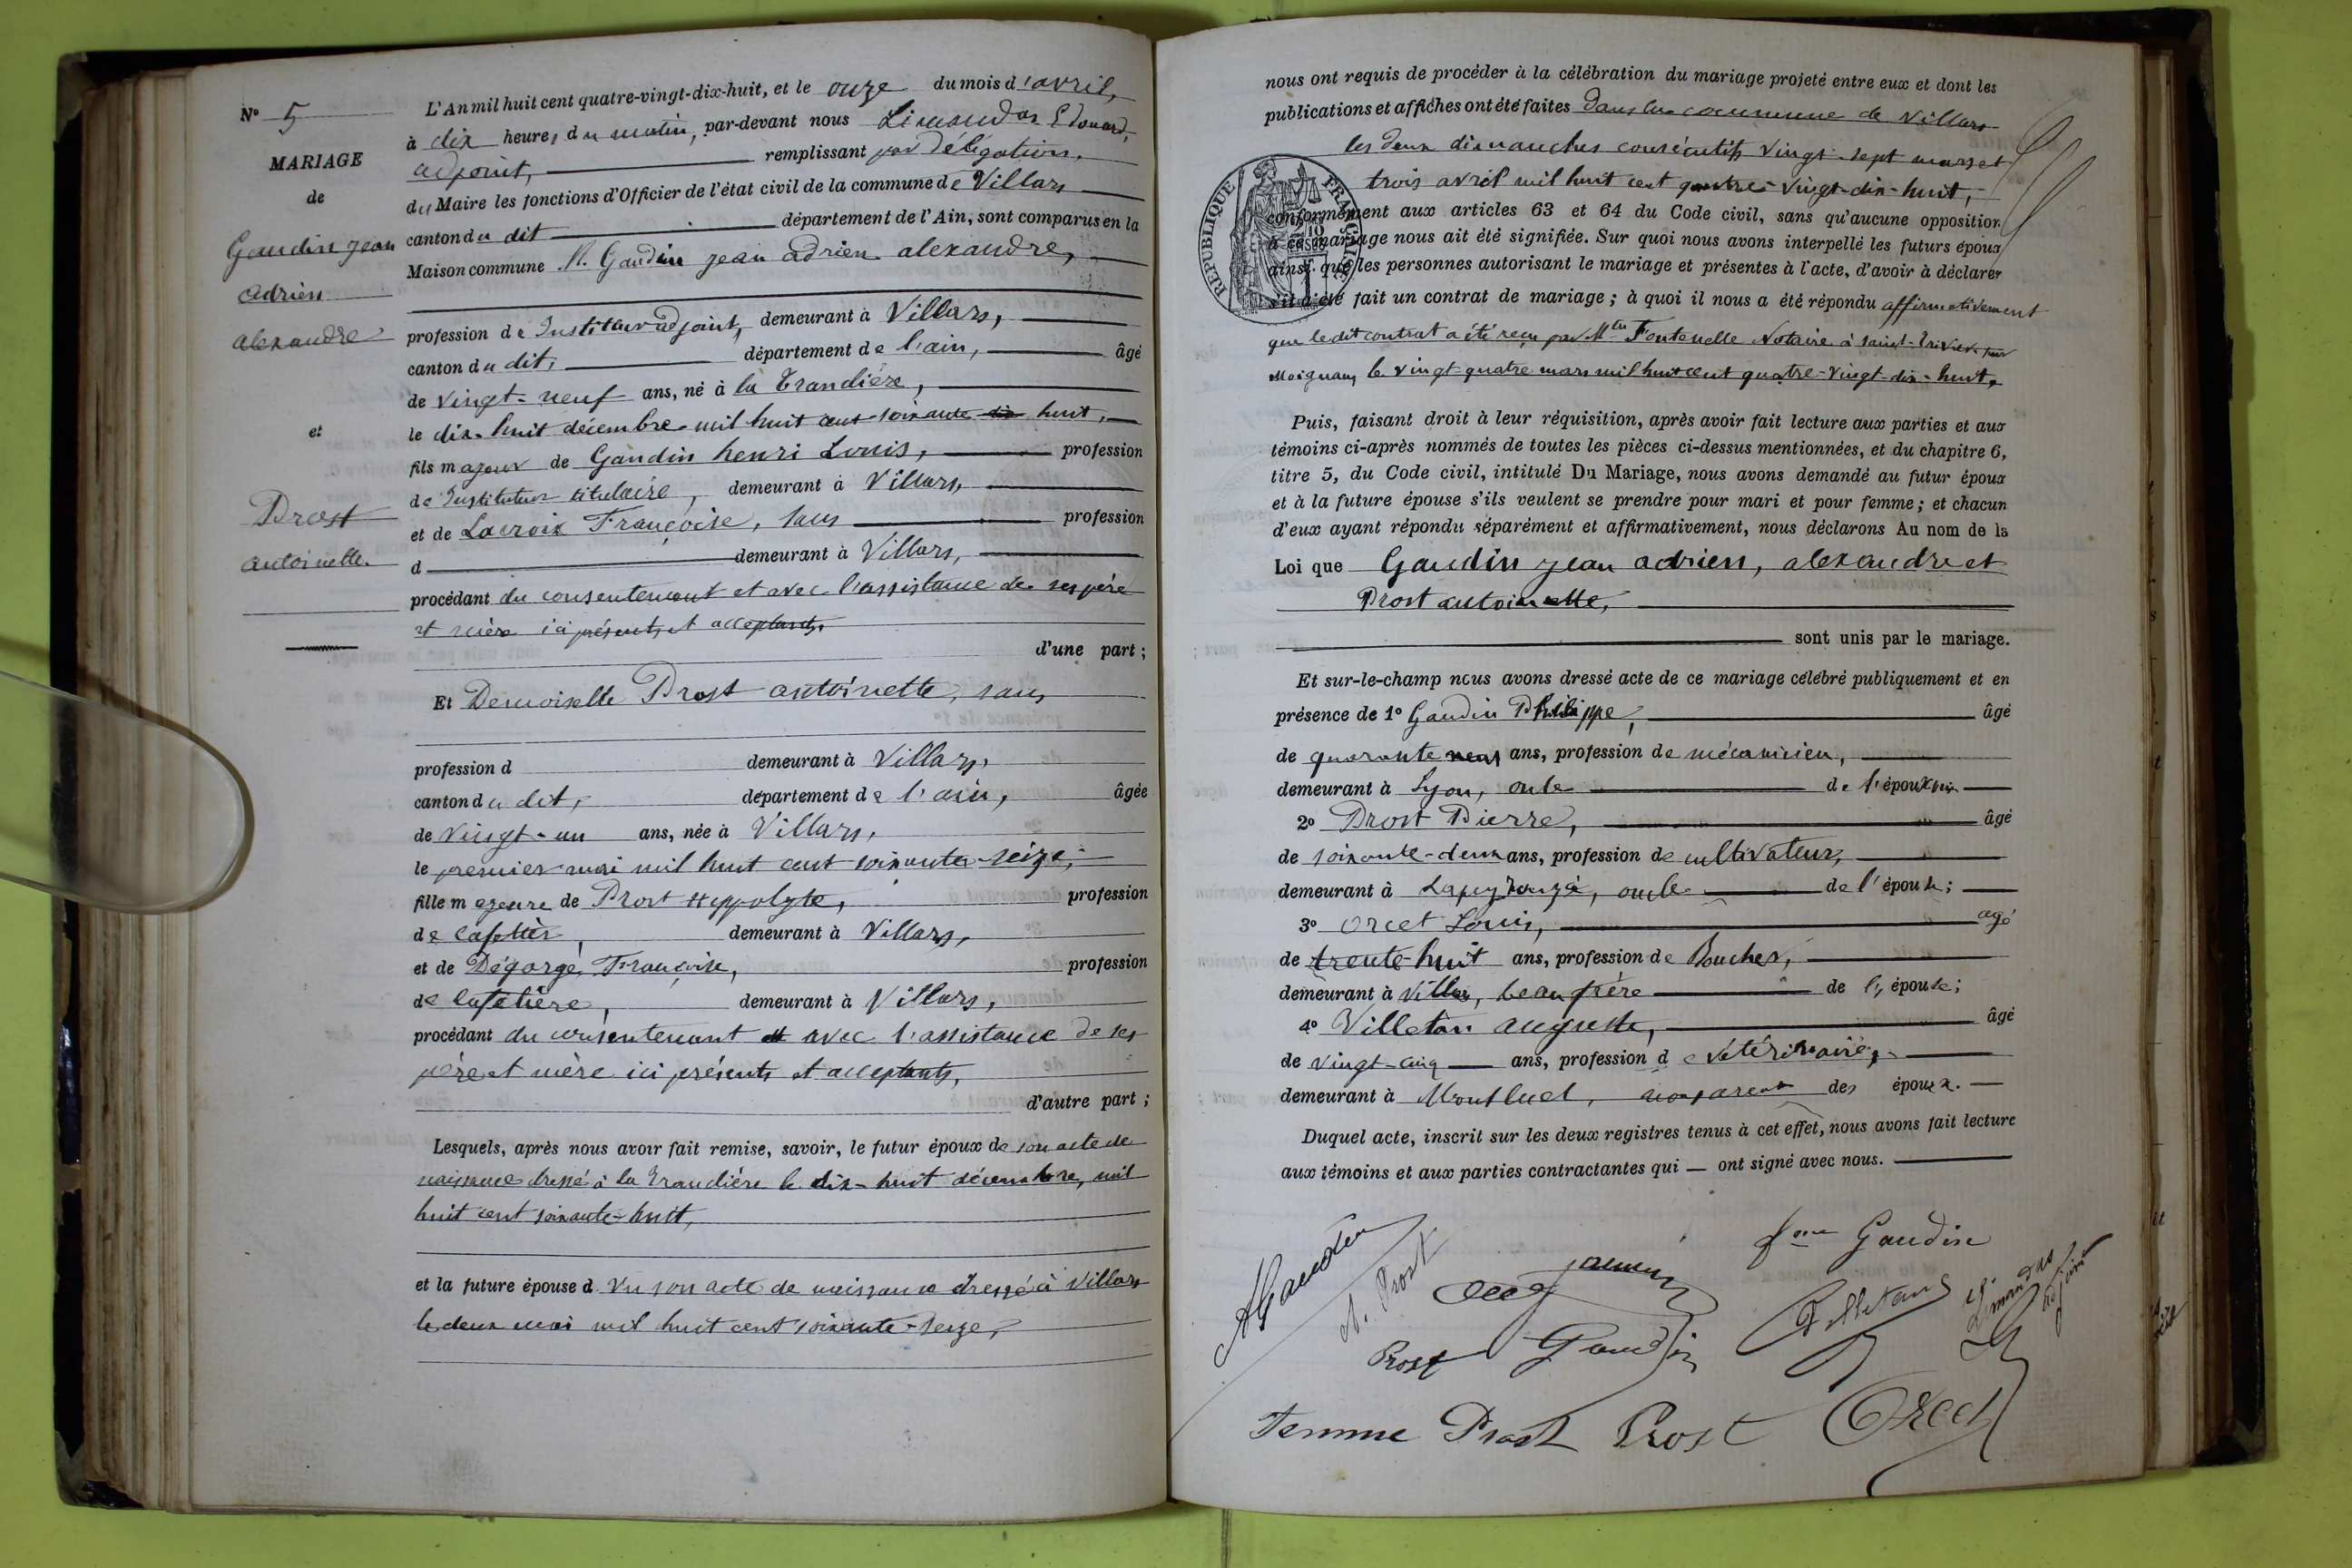 N° 5
MARIAGE
de
Gaudin Jean
Adrien
Alexandre
et
Prost
Antoinette.
L'An mil huit cent quatre-vingt-dix-huit, et le onze du mois d'avril,
à dix heures du matin, par-devant nous Limandas Edouard,
adjoint, remplissant par délégation,
du Maire les fonctions d'Officier de l'état civil de la commune de Villars
canton du dit département de l'Ain, sont comparus en la
Maison commune M. Gaudin Jean Adrien Alexandre,
profession de Instituteur adjoint, demeurant à Villars,
canton du dit, département de l'ain, âgé
de vingt-neuf ans, né à la Tranclière,
le dix-huit décembre mil huit cent soixante dix huit,
fils majeur de Gaudin henri Louis, profession
de Instituteur titulaire, demeurant à Villars,
et de Lacroix Françoise, sans profession
d demeurant à Villars,
procédant du consentement et avec l'assistance de ses père
et mère ici présents et acceptants.
d'une part ;
Et Demoiselle Prost antoinette, sans
profession d demeurant à Villars,
canton du dit, département de l'ain, âgée
de vingt-un ans, née à Villars,
le premier mai mil huit cent soixante-seize,
fille majeure de Prost Hyppolyte, profession
de cafetier, demeurant à Villars,
et de Dégorge Françoise, profession
de cafetière, demeurant à Villars,
procédant du consentement et avec l'assistance de ses
père et mère ici présents et acceptants,
d'autre part ;
Lesquels, après nous avoir fait remise, savoir, le futur époux de son acte de
naissance dressé à la Tranclière le dix-huit décembre, mil
huit cent soixante-huit,
et la future épouse d Vu son acte de naissance dressé à Villars
le deux mai mil huit cent soixante-seize,
nous ont requis de procéder à la célébration du mariage projeté entre eux et dont les
publications et affiches ont été faites dans la commune de Villars
les deux dimanches consécutifs vingt-sept mars et
trois avril mil huit cent quatre-vingt-dix-huit,
RÉPUBLIQUE FRANÇAISE
conformément aux articles 63 et 64 du Code civil, sans qu'aucune opposition
à ce mariage nous ait été signifiée. Sur quoi nous avons interpellé les futurs époux
ainsi que les personnes autorisant le mariage et présentes à l'acte, d'avoir à déclarer
s'il a été fait un contrat de mariage ; à quoi il nous a été répondu affirmativement
que le dit contrat a été reçu par Me Fontenelle Notaire à Saint-Trivier sur
Moignans le vingt quatre mars mil huit cent quatre-vingt-dix-huit,
Puis, faisant droit à leur réquisition, après avoir fait lecture aux parties et aux
témoins ci-après nommés de toutes les pièces ci-dessus mentionnées, et du chapitre 6,
titre 5, du Code civil, intitulé Du Mariage, nous avons demandé au futur époux
et à la future épouse s'ils veulent se prendre pour mari et pour femme ; et chacun
d'eux ayant répondu séparément et affirmativement, nous déclarons Au nom de la
Loi que Gaudin Jean adrien, alexandre et
Prost antoinette,
sont unis par le mariage.
Et sur-le-champ nous avons dressé acte de ce mariage célébré publiquement et en
présence de 1° Gaudin Philippe, âgé
de quarante ans, profession de mécanicien,
demeurant à Lyon, oncle de l'époux
2° Prost Pierre, âgé
de soixante-deux ans, profession de cultivateur,
demeurant à Lapeyrouze, oncle de l'épouse;
3° Orcet Louis, agé
de trente-huit ans, profession de Boucher,
demeurant à Villars, beau frère de l'épouse;
4° Villetan auguste, âgé
de vingt-cinq ans, profession de Vétérinaire,
demeurant à Montluel, non parent des époux.
Duquel acte, inscrit sur les deux registres tenus à cet effet, nous avons fait lecture
aux témoins et aux parties contractantes qui ont signé avec nous.
AGaudin
A. Prost
fme Gaudin
Prost Gaudin
Villetan
Ed. Limandas
adjoint
Femme Prost Prost Orcet